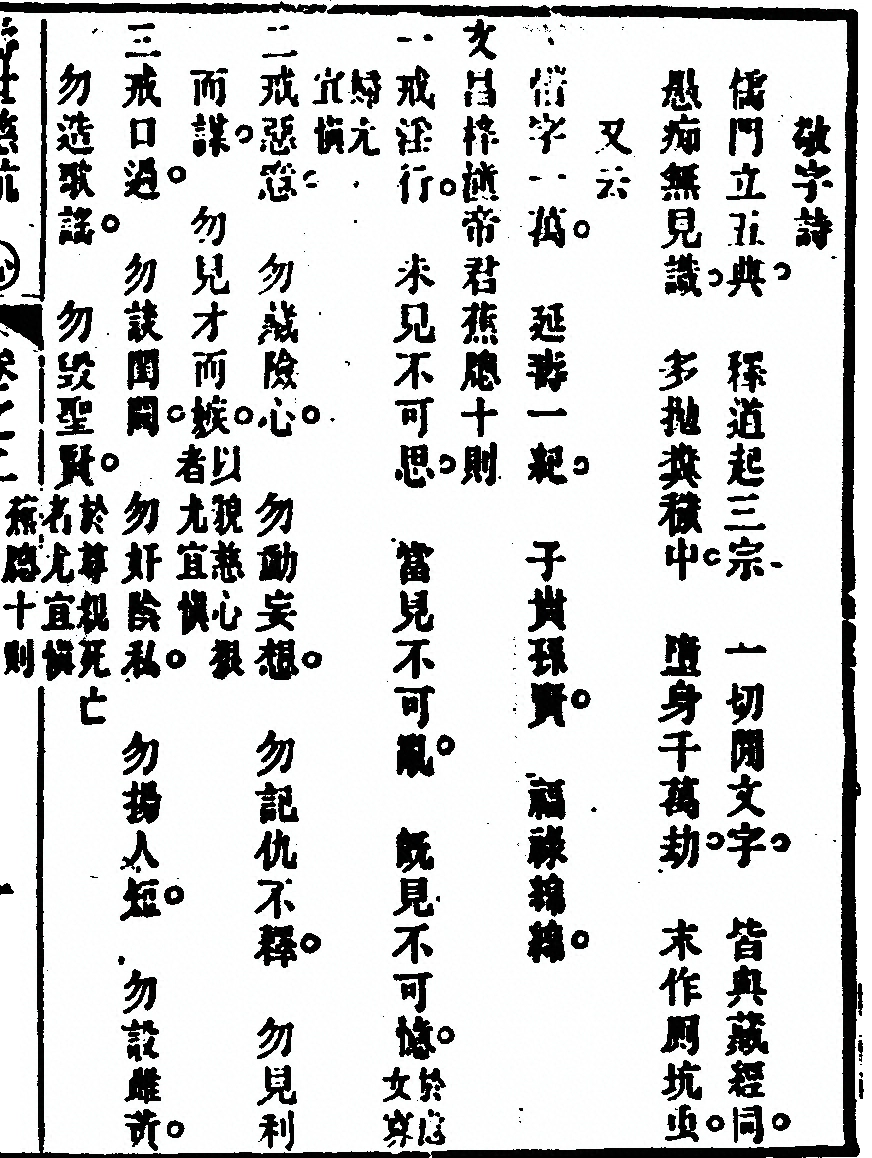 敬字詩
儒門立五典。釋道起三宗。一切閒文字。皆與藏經同。
愚痴無見識。多拋糞穢中。墮身千萬劫。末作厠坑虫。
又云
惜字一萬。延壽一紀。子貴孫賢。福祿綿綿。
文昌梓潼帝君蕉牕十則
一戒淫行。未見不可思。當見不可亂。既見不可憶。於處女寡
婦尤宜慎
二戒惡意。勿藏險心。勿動妄想。勿記仇不釋。勿見利
而謀。勿見才而嫉。以貌慈心狠者尤宜慎
三戒口過。勿談閨閫。勿奸陰私。勿揚人短。勿設雌黃。
勿造歌謠。勿毀聖賢。於尊親死亡者尤宜慎
卷之二
蕉牕十則